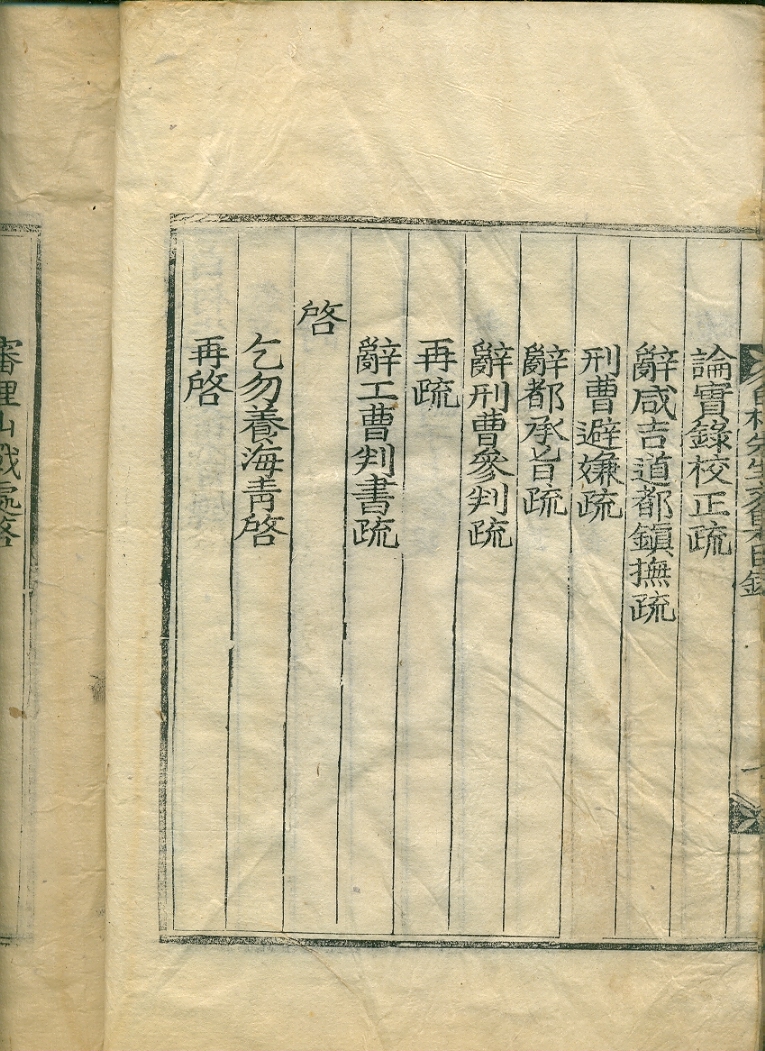 白村先生文集目錄
論實錄校正疏
辭咸吉道都鎮撫疏
刑曹避嫌疏
辭都承旨疏
辭刑曹參判疏
再疏
辭工曹判書疏
啓
乞勿養海靑啓
再啓
審理山